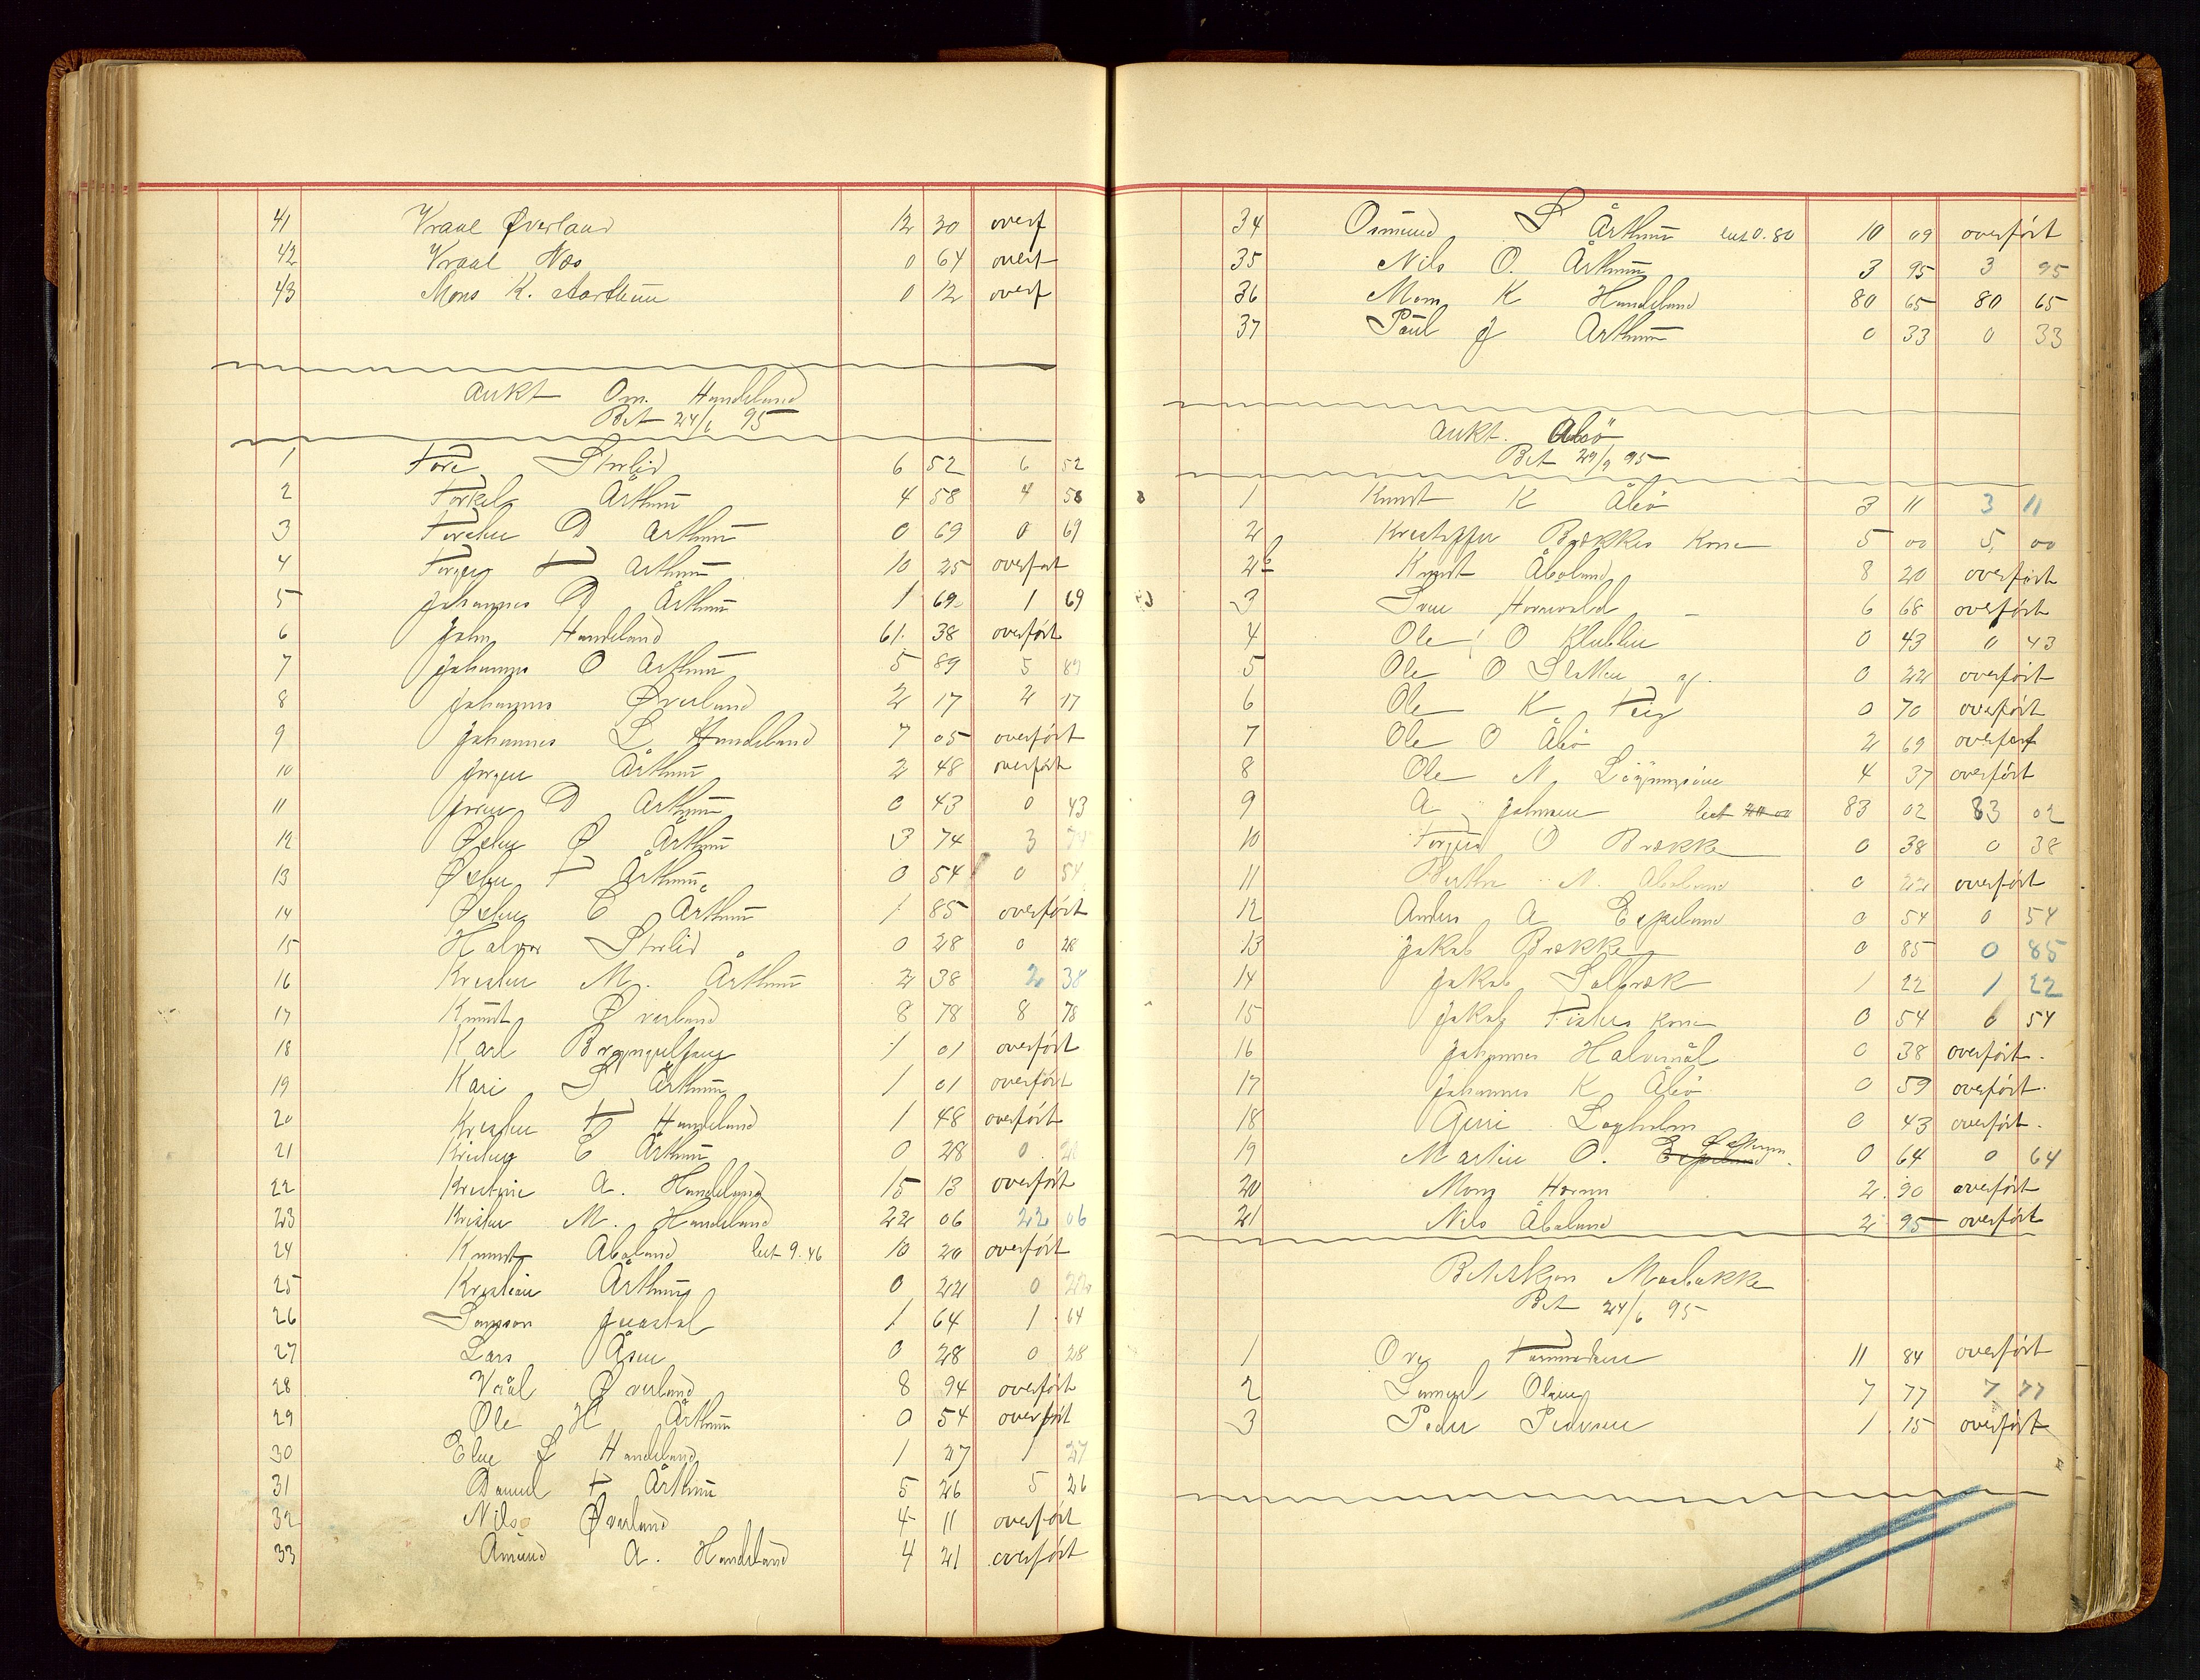 41 Vraal Øverland 12 30 overf
42 Vraal Næs 0 64 overf
43 Mons K. Aarthun 0 12 overf
Aukt Om. Handeland
Bet 24/6 95
1 Tore Storlid 6 52 6 52
2 Torkel Årthun 4 58 4 58
3 D Arthun 0 69 0 69
4 T Arthun 10 25 overført
5 Johannes D Årthun 1 69 1 69
6 John Handeland 61. 38 overført
7 Johannes O Arthun 5 89 5 89
8 Johannes Øverland 2 17 2 17
9 Johannes L Handeland 7 05 overført
10 Jorgen Årthun 2 48 overført
11 D Arthun 0 43 0 43
12 Ø Årthun 3 74 3 74
13 T Årthun 0 54 0 54
14 E Årthun 1 85 overført
15 Halvor Storlid 0 28 0 28
16 Kristen M. Årthun 2 38 2 38
17 Knudt Øverland 8 78 8 78
18 Karl 1 01 overført
19 Kari S Årthun 1 01 overført
20 T Handeland 1 48 overført
21 E Årthun 0 28 0 28
22 Kristine A. Handeland 15 13 overført
23 Kristen M. Handeland 22 06 22 06
24 Knudt Åbøland 9.46 10 20 overført
25 Kristian Årthun 0 22 0 22
26 1 64 1 64
27 Lars Åsen 0 28 0 28
28 Vrål Øverland 8 94 overført
29 Ole H Årthun 0 54 overført
30 Handeland 1 27 1 27
31 Daniel T Årthun 5 26 5 26
32 Nils Øverland 4 11 overført
33 Amund A. Handeland 4 21 overført
34 Osmund S Årthun 0.80 10 09 overført
35 Nils O. Årthun 3 95 3 95
36 Mons K Handeland 80 65 80 65
37 Paul J Årthun 0 33 0 33
Aukt. Åbø
Bet 24/9 95
1 Knudt K Åbø 3 11 3 11
2 Brækkes Kone 5 00 5, 00
2b Knudt Åbøland 8 20 overført
3 Sven 6 68 overført
4 Ole O 0 43 0 43
5 Ole O 0 22 overført
6 Ole K Teig 0 70 overført
7 Ole O Åbø 2 69 overført
8 Ole N. 4 37 overført
9 A Johnsen 83 02 83 02
10 O Brække 0 38 0 38
11 N. Åbøland 0 22 overført
12 Anders A Espeland 0 54 0 54
13 Jakob Brække 0 85 0 85
14 Jakob Solbræk 1 22 1 22
15 Jakob Fiskes kone 0 54 0 54
16 Johannes 0 38 overført.
17 Johannes K Åbø 0 59 overført.
18 Løgholm 0 43 overført.
19 Martin O. Espeland 0 64 0 64
20 Mons 2. 90 overført
21 Nils Åbøland 2 95 overført
Betskjen Maabakke
Bet 24/6 95
1 Ove 11 84 overført
2 Samuel Olsen 7 77 7 77
3 Peder Pedersen 1 15 overført